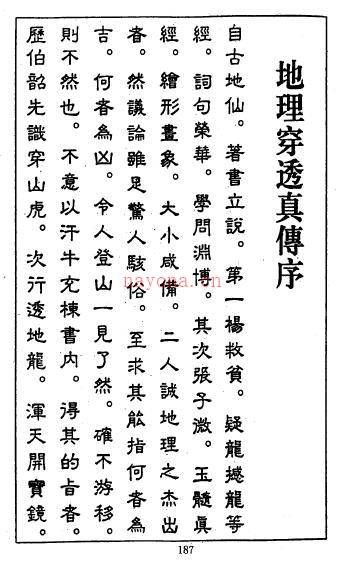 地理穿透真傳序
自古地仙。著書立說。第一楊救貧。疑龍撼龍等
經。詞句榮華。學問淵博。其次張子微。玉髓眞
經。繪形畫象。大小咸備。二人誠地理之杰出
者。然議論雖足驚人駭俗。至求其能指何者為
吉。何者為凶。令人登山一見了然。確不游移。
則不然也。不意以汗牛充棟書内。得其的旨者。
歷伯韶先識穿山虎。次行透地龍。渾天開寶鏡。
nayona.cn
187